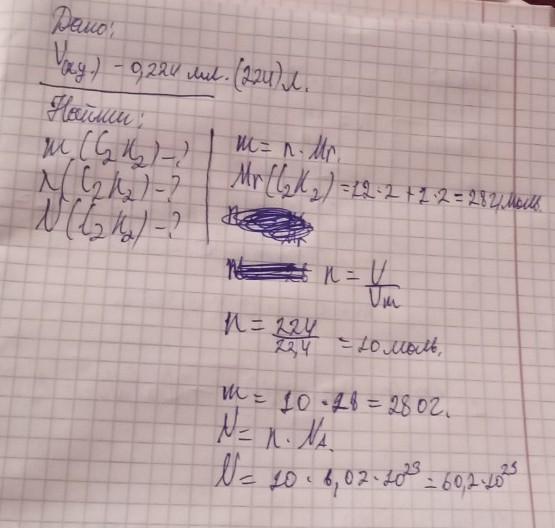 Дано:
V(ну.) - 0,224 мл. (224) л.
Найти:
m (C₂H₂) - ?
n (C₂H₂) - ?
N (C₂H₂) - ?
m = n · Mr.
Mr (C₂H₂) = 12 · 2 + 2 · 2 = 28 г/моль.
n = V/Vm
n = 224/22,4 = 10 моль.
m = 10 · 28 = 280 г.
N = n · NA.
N = 10 · 6,02 · 10²³ = 60,2 · 10²³